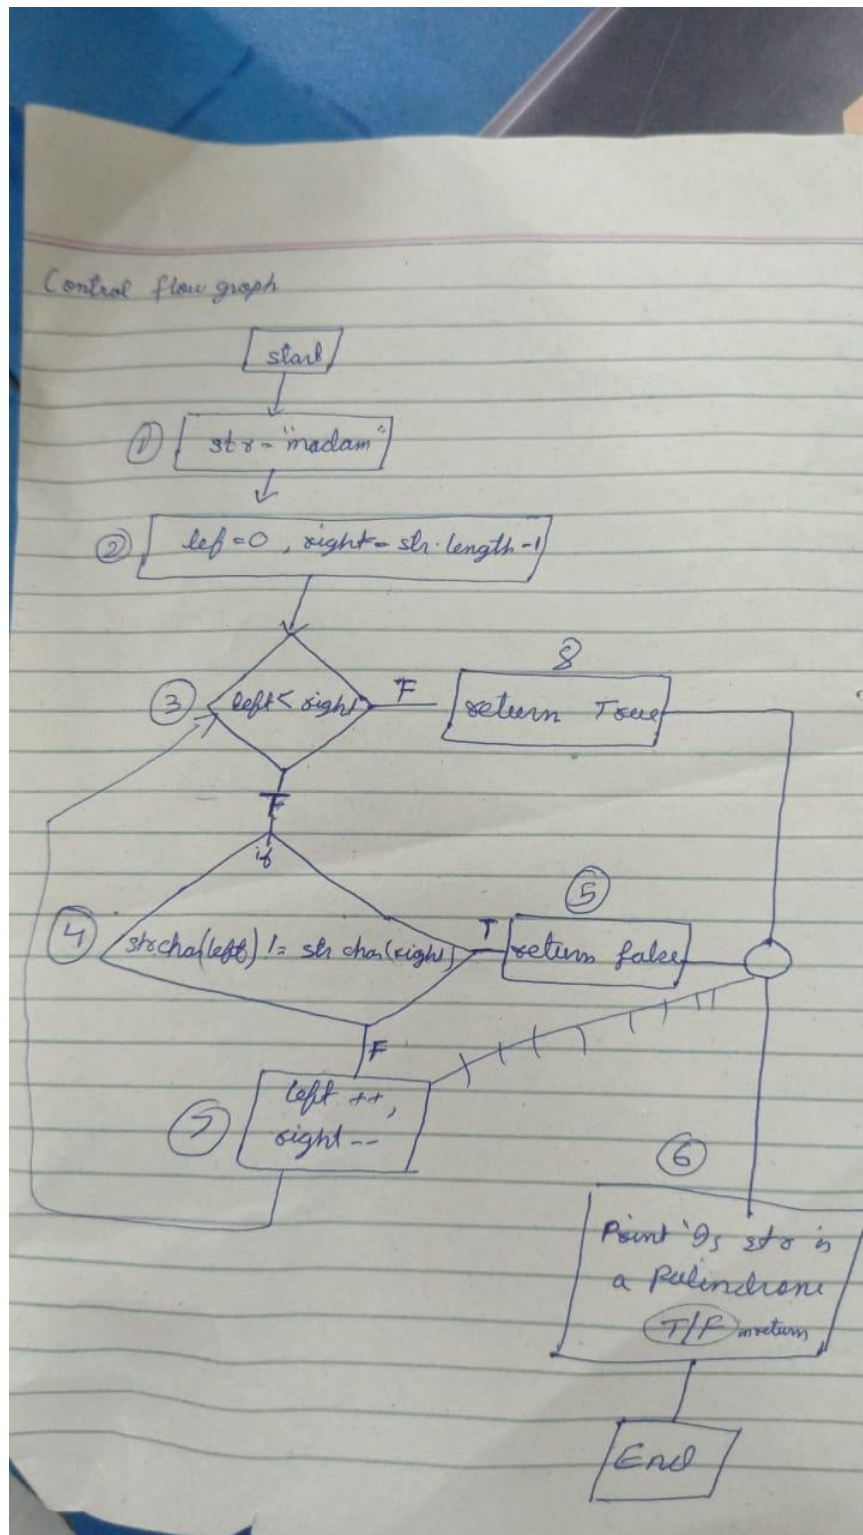 Control flow graph
start
① str = "madam"
② lef = 0, right = str.length - 1
8
③ left < right F return True
T
if
⑤
④ str char(left) != str char(right) T return false
F
⑦ left ++,
right --
⑥
Print "Is str is
a Palindrome
T/F return
End